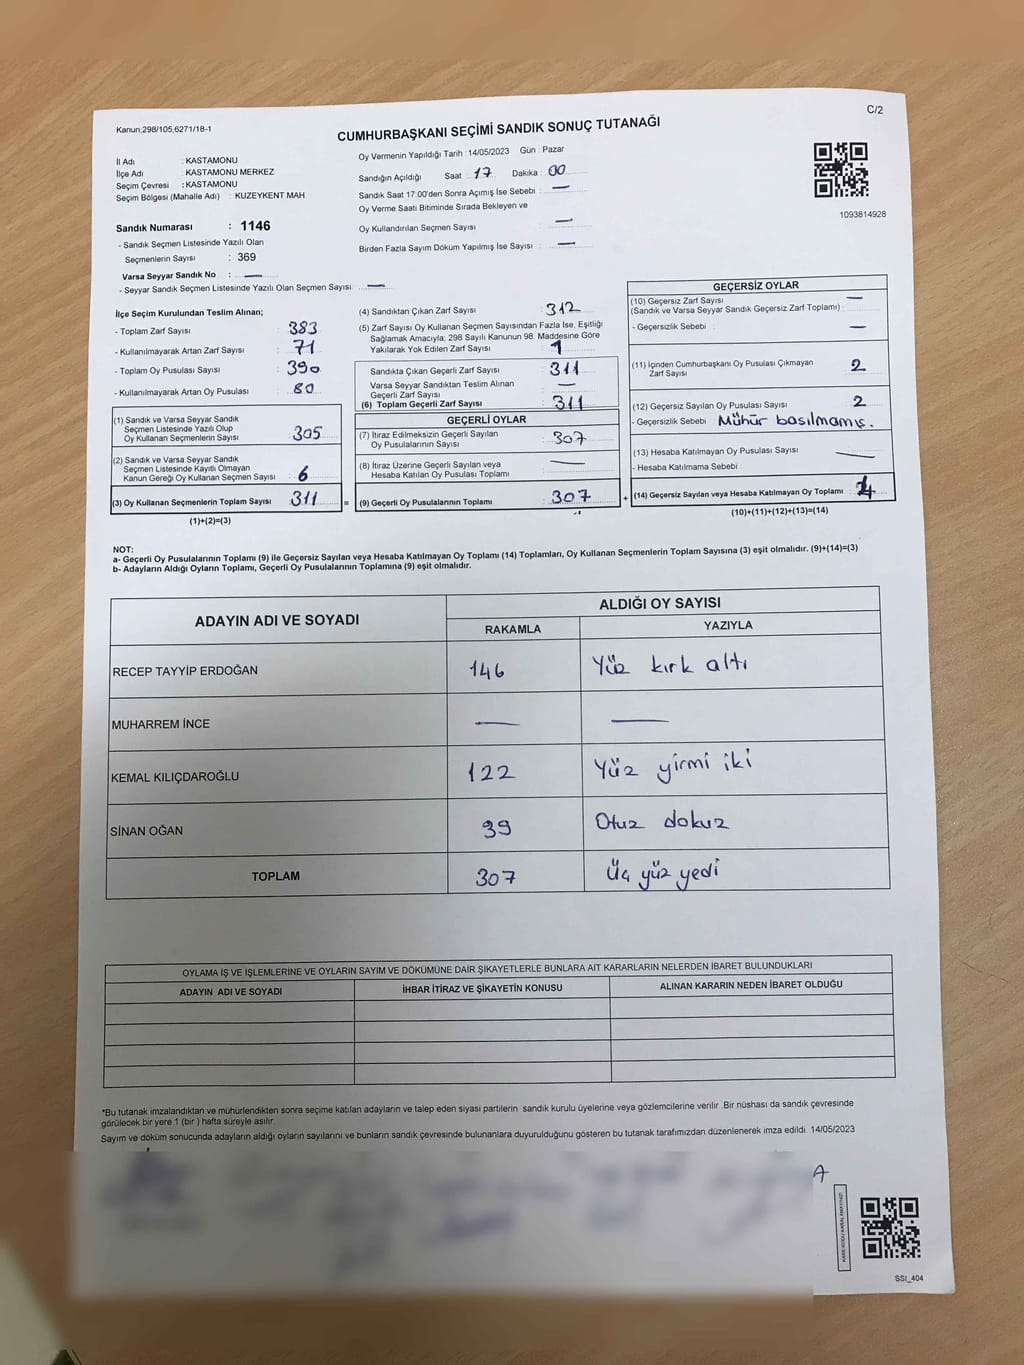 Kanun,298/105,6271/18-1
C/2
CUMHURBAŞKANI SEÇİMİ SANDIK SONUÇ TUTANAĞI
İl Adı : KASTAMONU
İlçe Adı : KASTAMONU MERKEZ
Seçim Çevresi : KASTAMONU
Seçim Bölgesi (Mahalle Adı) : KUZEYKENT MAH
Sandık Numarası : 1146
- Sandık Seçmen Listesinde Yazılı Olan
Seçmenlerin Sayısı : 369
Varsa Seyyar Sandık No : —
- Seyyar Sandık Seçmen Listesinde Yazılı Olan Seçmen Sayısı: —
Oy Vermenin Yapıldığı Tarih : 14/05/2023 Gün : Pazar
Sandığın Açıldığı Saat 17 Dakika : 00
Sandık Saat 17:00'den Sonra Açımış İse Sebebi : —
Oy Verme Saati Bitiminde Sırada Bekleyen ve
Oy Kullandırılan Seçmen Sayısı : —
Birden Fazla Sayım Döküm Yapılmış İse Sayısı : —
1093814928
İlçe Seçim Kurulundan Teslim Alınan;
- Toplam Zarf Sayısı : 383
- Kullanılmayarak Artan Zarf Sayısı : 71
- Toplam Oy Pusulası Sayısı : 390
- Kullanılmayarak Artan Oy Pusulası : 80
(1) Sandık ve Varsa Seyyar Sandık
Seçmen Listesinde Yazılı Olup
Oy Kullanan Seçmenlerin Sayısı : 305
(2) Sandık ve Varsa Seyyar Sandık
Seçmen Listesinde Kayıtlı Olmayan
Kanun Gereği Oy Kullanan Seçmen Sayısı : 6
(3) Oy Kullanan Seçmenlerin Toplam Sayısı : 311 =
(1)+(2)=(3)
(4) Sandıktan Çıkan Zarf Sayısı : 312
(5) Zarf Sayısı Oy Kullanan Seçmen Sayısından Fazla İse, Eşitliği
Sağlamak Amacıyla; 298 Sayılı Kanunun 98. Maddesine Göre
Yakılarak Yok Edilen Zarf Sayısı : 1
Sandıkta Çıkan Geçerli Zarf Sayısı : 311
Varsa Seyyar Sandıktan Teslim Alınan
Geçerli Zarf Sayısı : —
(6) Toplam Geçerli Zarf Sayısı : 311
GEÇERLİ OYLAR
(7) İtiraz Edilmeksizin Geçerli Sayılan
Oy Pusulalarının Sayısı : 307
(8) İtiraz Üzerine Geçerli Sayılan veya
Hesaba Katılan Oy Pusulası Toplamı : —
(9) Geçerli Oy Pusulalarının Toplamı : 307 +
GEÇERSİZ OYLAR
(10) Geçersiz Zarf Sayısı —
(Sandık ve Varsa Seyyar Sandık Geçersiz Zarf Toplamı) :
- Geçersizlik Sebebi : —
(11) İçinden Cumhurbaşkanı Oy Pusulası Çıkmayan
Zarf Sayısı : 2
(12) Geçersiz Sayılan Oy Pusulası Sayısı : 2
- Geçersizlik Sebebi : Mühür basılmamış.
(13) Hesaba Katılmayan Oy Pusulası Sayısı : —
- Hesaba Katılmama Sebebi :
(14) Geçersiz Sayılan veya Hesaba Katılmayan Oy Toplamı : 4
(10)+(11)+(12)+(13)=(14)
NOT:
a- Geçerli Oy Pusulalarının Toplamı (9) ile Geçersiz Sayılan veya Hesaba Katılmayan Oy Toplamı (14) Toplamları, Oy Kullanan Seçmenlerin Toplam Sayısına (3) eşit olmalıdır. (9)+(14)=(3)
b- Adayların Aldığı Oyların Toplamı, Geçerli Oy Pusulalarının Toplamına (9) eşit olmalıdır.
ADAYIN ADI VE SOYADI
ALDIĞI OY SAYISI
RAKAMLA YAZIYLA
RECEP TAYYİP ERDOĞAN 146 Yüz kırk altı
MUHARREM İNCE — —
KEMAL KILIÇDAROĞLU 122 Yüz yirmi iki
SİNAN OĞAN 39 Otuz dokuz
TOPLAM 307 Üç yüz yedi
OYLAMA İŞ VE İŞLEMLERİNE VE OYLARIN SAYIM VE DÖKÜMÜNE DAİR ŞİKAYETLERLE BUNLARA AİT KARARLARIN NELERDEN İBARET BULUNDUKLARI
ADAYIN ADI VE SOYADI İHBAR İTİRAZ VE ŞİKAYETİN KONUSU ALINAN KARARIN NEDEN İBARET OLDUĞU
*Bu tutanak imzalandıktan ve mühürlendikten sonra seçime katılan adayların ve talep eden siyasi partilerin sandık kurulu üyelerine veya gözlemcilerine verilir .Bir nüshası da sandık çevresinde
görülecek bir yere 1 (bir ) hafta süreyle asılır.
Sayım ve döküm sonucunda adayların aldığı oyların sayılarını ve bunların sandık çevresinde bulunanlara duyurulduğunu gösteren bu tutanak tarafımızdan düzenlenerek imza edildi. 14/05/2023
A
SSI_404